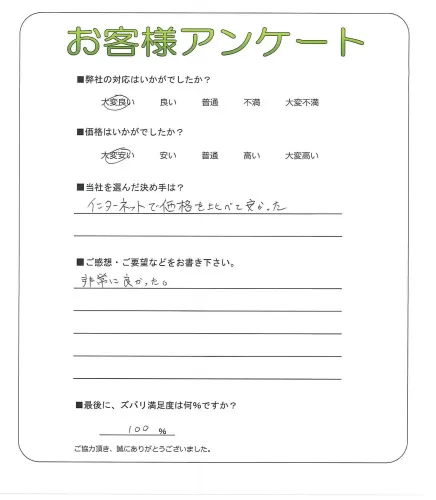 お客様アンケート
■弊社の対応はいかがでしたか？
大変良い 良い 普通 不満 大変不満
■価格はいかがでしたか？
大変安い 安い 普通 高い 大変高い
■当社を選んだ決め手は？
インターネットで価格を比べて安かった
■ご感想・ご要望などをお書き下さい。
非常に良かった。
■最後に、ズバリ満足度は何％ですか？
100 ％
ご協力頂き、誠にありがとうございました。